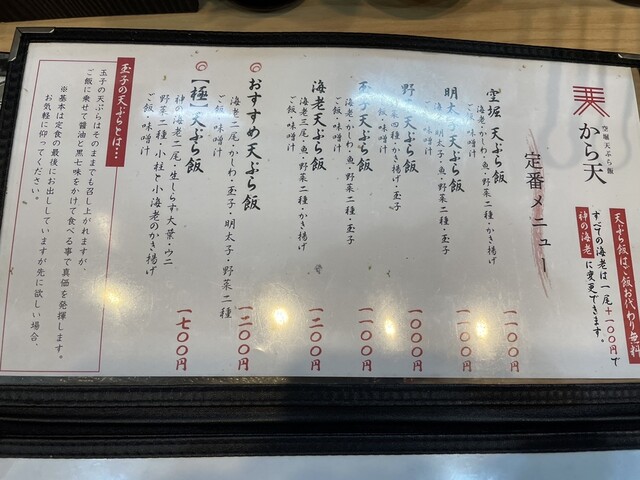 空堀天ぷら飯
から天
定番メニュー
天ぷら飯はご飯おかわり無料
すべての海老は一尾+一〇〇円で
神の海老に変更できます。
空堀 天ぷら飯
海老・かしわ・魚・野菜二種・かき揚げ
ご飯・味噌汁
一一〇〇円
明太子天ぷら飯
海老・明太子・魚・野菜二種・玉子
ご飯・味噌汁
一一〇〇円
野菜天ぷら飯
ご飯・味噌汁
一〇〇〇円
玉子天ぷら飯
海老・かしわ・魚・野菜二種・玉子
ご飯・味噌汁
一一〇〇円
海老天ぷら飯
海老三尾・魚・野菜二種・かき揚げ
ご飯・味噌汁
一二〇〇円
おすすめ天ぷら飯
海老二尾・かしわ・玉子・明太子・野菜二種
ご飯・味噌汁
一二〇〇円
【極】天ぷら飯
神の海老二尾・生しらす大葉・ウニ
野菜二種・小柱と小海老のかき揚げ
ご飯・味噌汁
一七〇〇円
玉子の天ぷらとは…
玉子の天ぷらはそのままでも召し上がれますが、
ご飯に乗せて醤油と黒七味をかけて食べる事で真価を発揮します。
※基本は定食の最後にお出ししていますが先に欲しい場合、
お気軽に仰ってください。